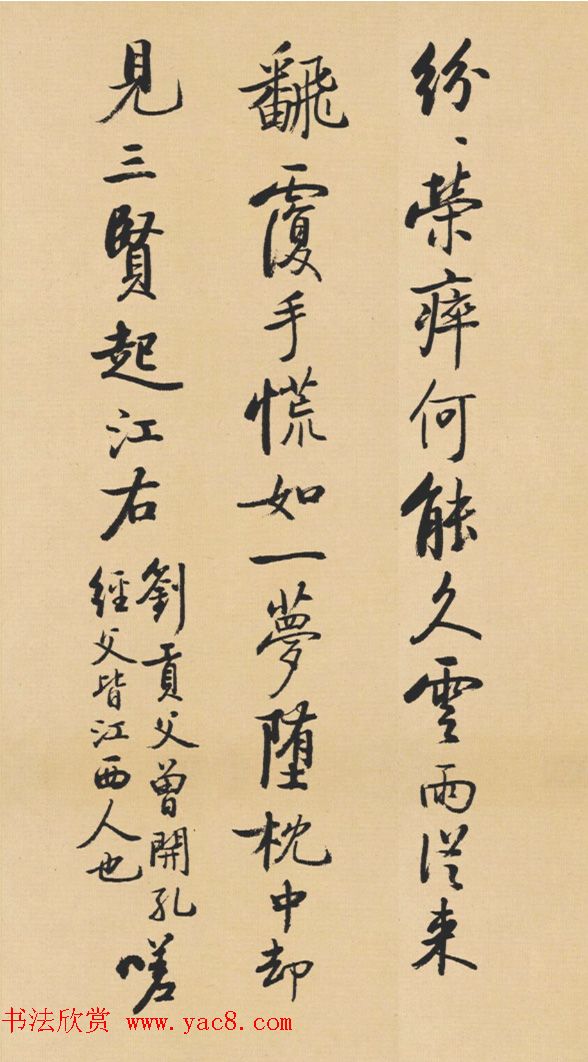 紛、榮瘁何能久雲雨從来
翻覆手慌如一夢堕枕中却
見三賢起江右
劉貢父曾開孔
經父皆江西人也
嗟
书法欣赏 www.yac8.com